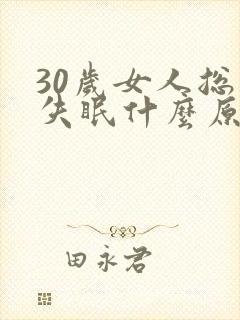 30歲女人総
失眠什麼原
田永君